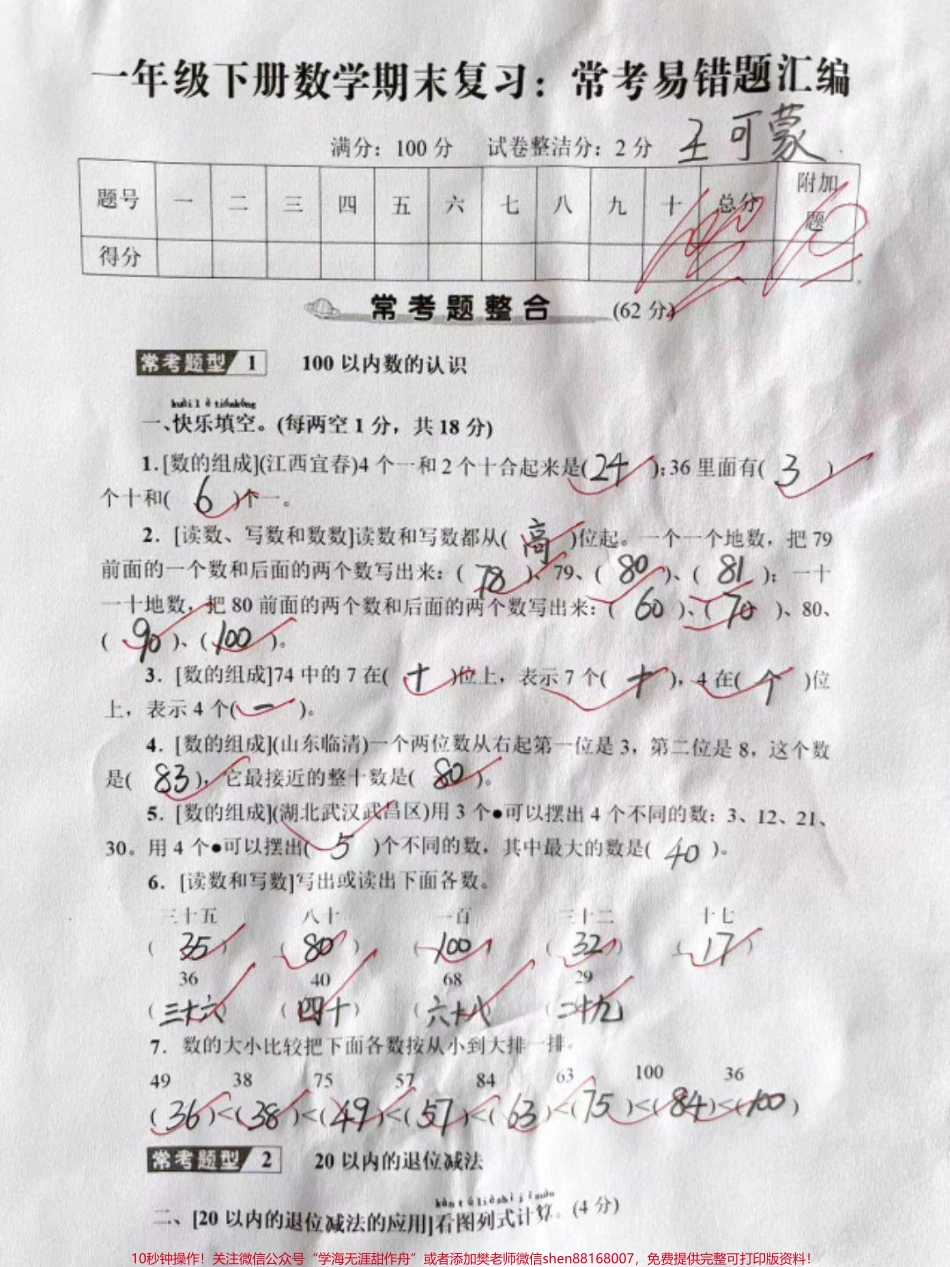 一年级下册数学期末复习：常考易错题汇编
满分：100分 试卷整洁分：2分 王可蒙
题号 一 二 三 四 五 六 七 八 九 十 总分 附加题
得分
常考题整合 (62分)
常考题型 1 100以内数的认识
kuài lè tián kòng
一、快乐填空。(每两空1分，共18分)
1.[数的组成](江西宜春)4个一和2个十合起来是(24);36里面有(3)
个十和(6)个一。
2. [读数、写数和数数]读数和写数都从(高)位起。一个一个地数，把79
前面的一个数和后面的两个数写出来：(78)、79、(80)、(81)；一十
一十地数，把80前面的两个数和后面的两个数写出来：(60)、(70)、80、
(90)、(100)。
3. [数的组成]74中的7在(十)位上，表示7个(十)，4在(个)位
上，表示4个(一)。
4. [数的组成](山东临清)一个两位数从右起第一位是3，第二位是8，这个数
是(83)，它最接近的整十数是(80)。
5. [数的组成](湖北武汉武昌区)用3个●可以摆出4个不同的数：3、12、21、
30。用4个●可以摆出(5)个不同的数，其中最大的数是(40)。
6. [读数和写数]写出或读出下面各数。
三十五 八十 一百 三十二 十七
(35) (80) (100) (32) (17)
36 40 68 29
(三十六) (四十) (六十八) (二十九)
7. 数的大小比较把下面各数按从小到大排一排。
49 38 75 57 84 63 100 36
(36)<(38)<(49)<(57)<(63)<(75)<(84)<(100)
常考题型 2 20以内的退位减法
kàn tú liè shì jì suàn
二、[20以内的退位减法的应用]看图列式计算。(4分)
10秒钟操作！关注微信公众号“学海无涯甜作舟”或者添加樊老师微信shen88168007，免费提供完整可打印版资料！